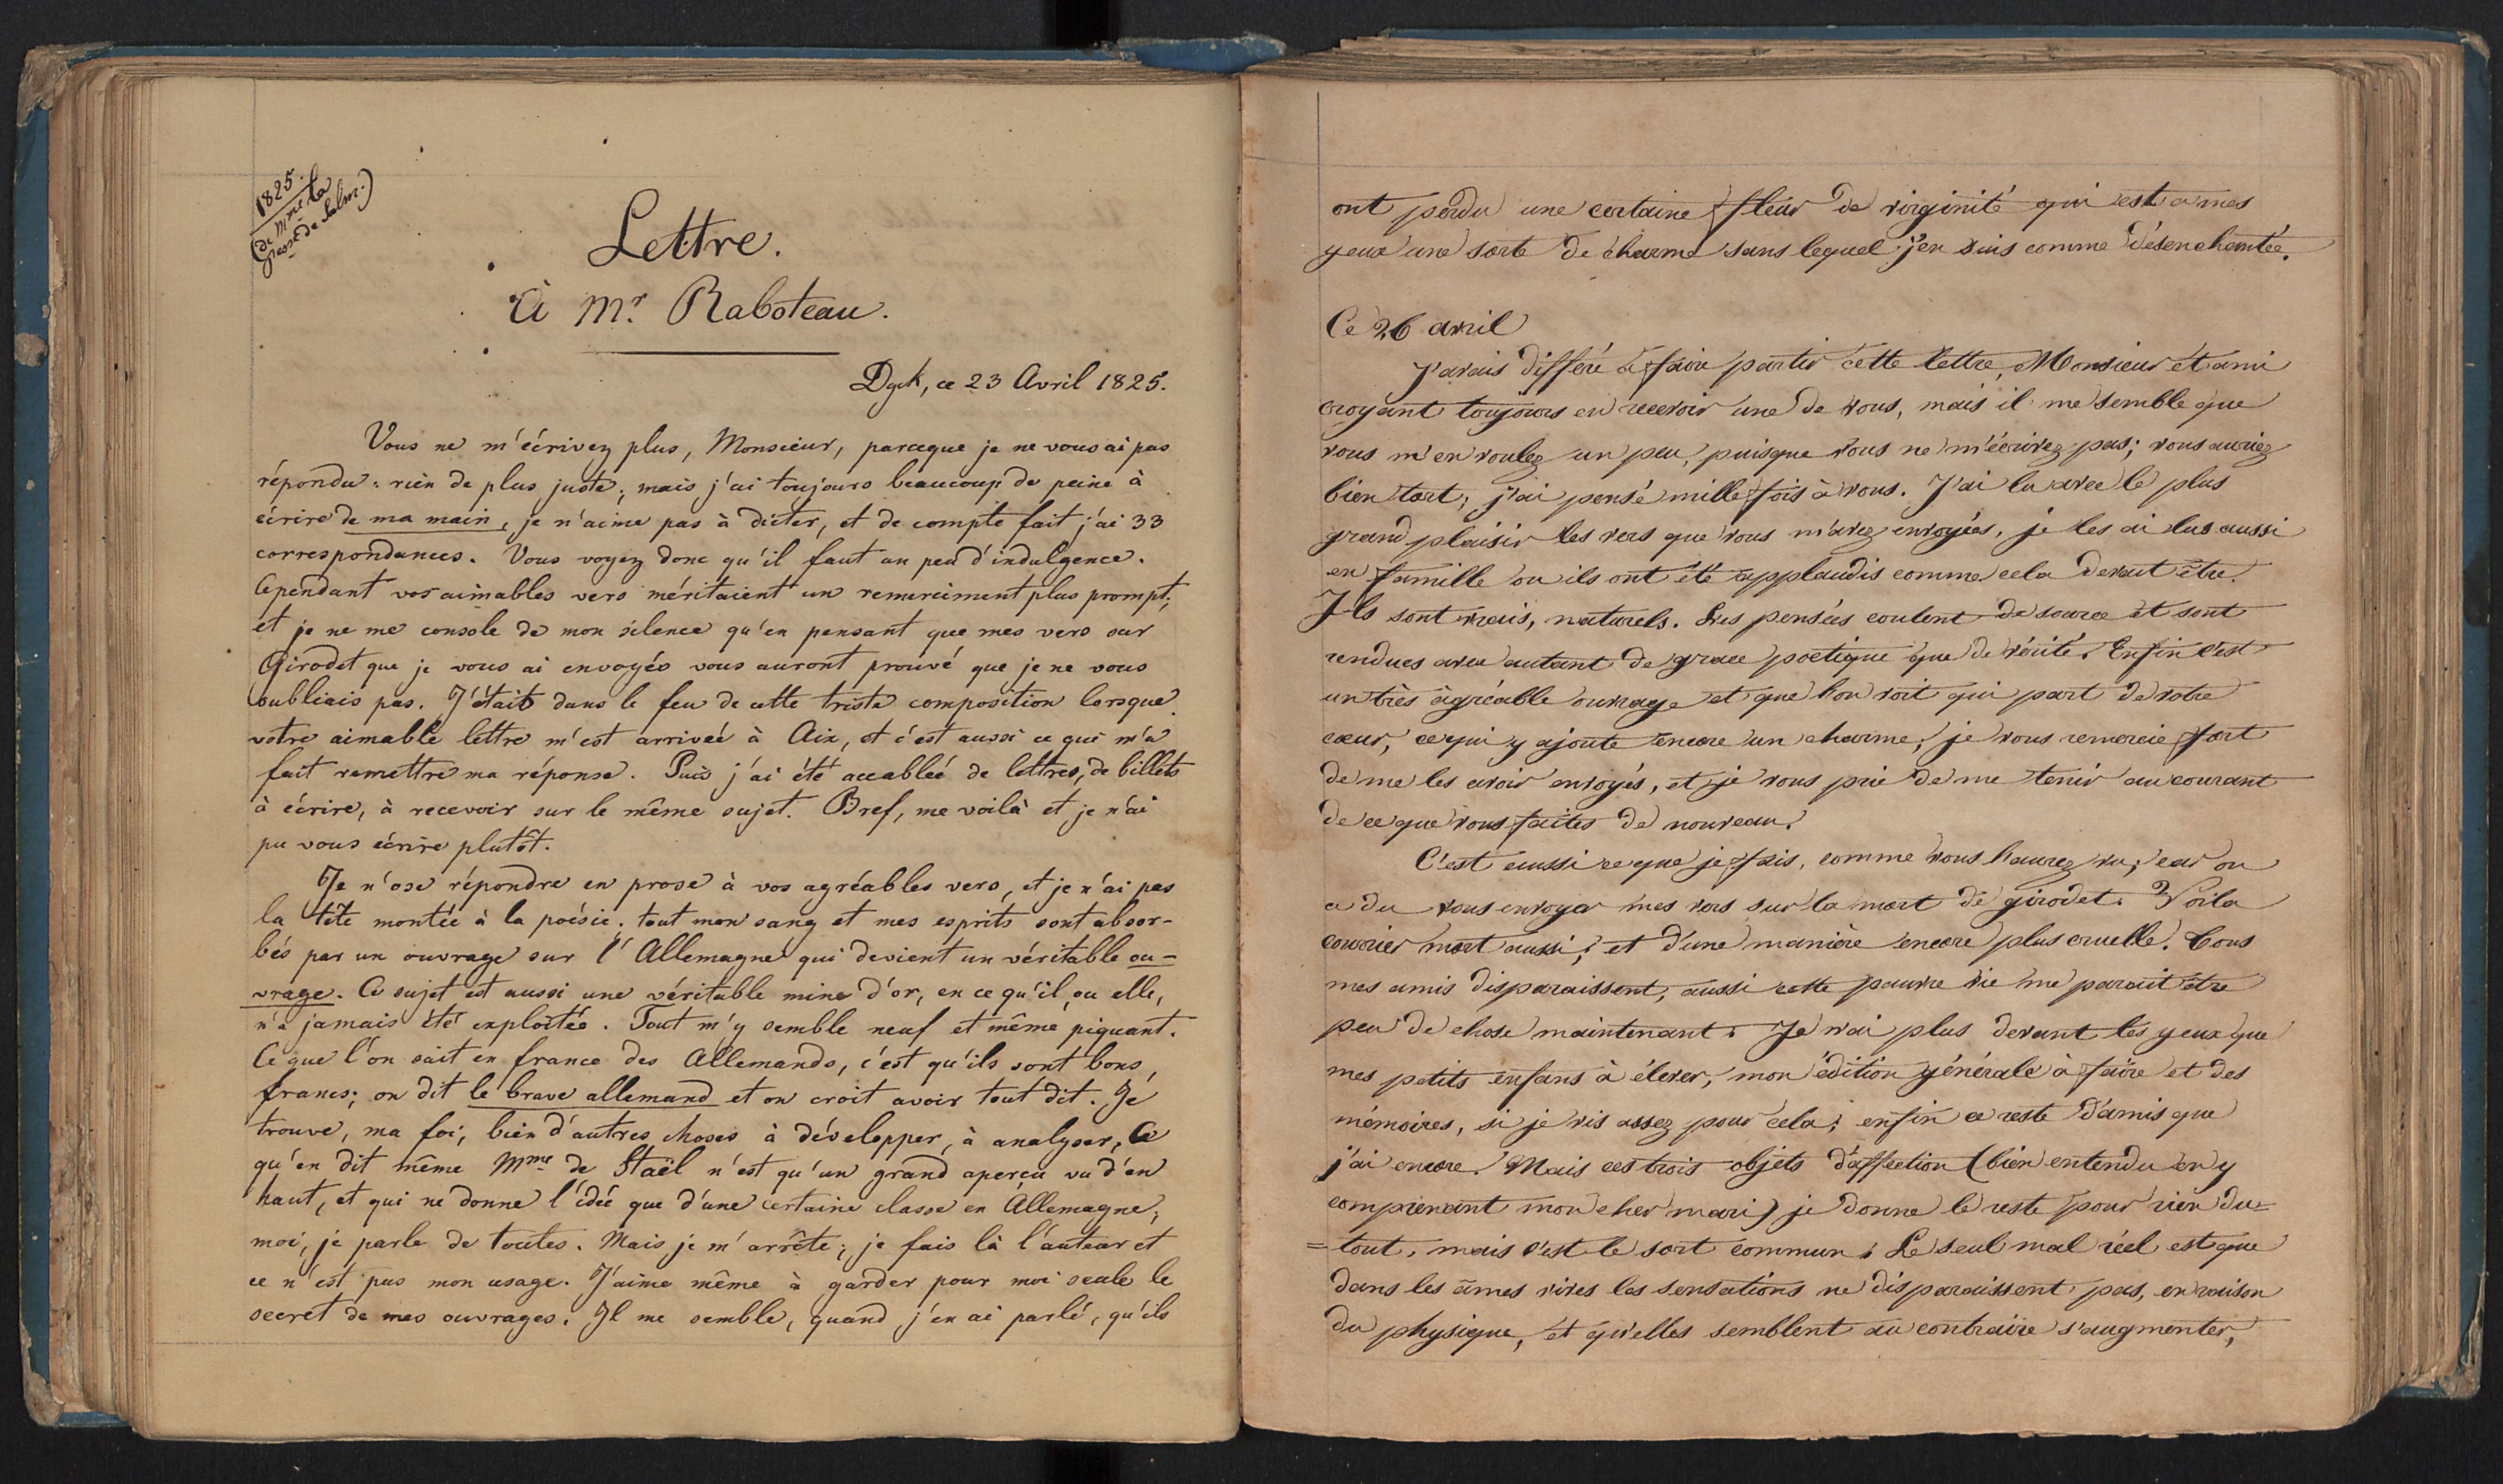 1825.
(de Mme la
Psse de Salm.)
Lettre.
À Mr. Raboteau.
Dyck, ce 23 Avril 1825.
Vous ne m'écrivez plus, Monsieur, parceque je ne vous ai pas
répondu: rien de plus juste; mais j'ai toujours beaucoup de peine à
écrire de ma main, je n'aime pas à dicter, et de compte fait j'ai 33
correspondances. Vous voyez donc qu'il faut un peu d'indulgence.
Cependant vos aimables vers méritaient un remerciment plus prompt;
et je ne me console de mon silence qu'en pensant que mes vers sur
Girodet que je vous ai envoyés vous auront prouvé que je ne vous
oubliais pas. J'étais dans le feu de cette triste composition lorsque
votre aimable lettre m'est arrivée à Aix, et c'est aussi ce qui m'a
fait remettre ma réponse. Puis j'ai été accablée de lettres, de billets
à écrire, à recevoir sur le même sujet. Bref, me voilà et je n'ai
pu vous écrire plutôt.
Je n'ose répondre en prose à vos agréables vers, et je n'ai pas
la tête montée à la poésie; tout mon sang et mes esprits sont absor-
bés par un ouvrage sur l'Allemagne qui devient un véritable ou-
vrage. Ce sujet est aussi une véritable mine d'or, en ce qu'il, ou elle,
n'a jamais été exploitée. Tout m'y semble neuf et même piquant.
Ce que l'on sait en france des Allemands, c'est qu'ils sont bons,
francs; on dit le brave allemand et on croit avoir tout dit. Je
trouve, ma foi, bien d'autres choses à développer, à analyser. Ce
qu'en dit même Mme de Staël n'est qu'un grand aperçu vu d'en
haut, et qui ne donne l'idée que d'une certaine classe en Allemagne;
moi, je parle de toutes. Mais je m'arrête; je fais là l'auteur et
ce n'est pas mon usage. J'aime même à garder pour moi seule le
secret de mes ouvrages. Il me semble, quand j'en ai parlé, qu'ils
ont perdu une certaine fleur de virginité qui est a mes
yeux une sorte de charme sans lequel j'en suis comme désenchantée.
Ce 26 avril
J'avais différé à faire partir cette lettre, Monsieur et ami
croyant toujours en recevoir une de vous, mais il me semble que
vous m'en voulez un peu, puisque vous ne m'écrivez pas; vous auriez
bien tort; j'ai pensé mille fois à vous. J'ai lu avec le plus
grand plaisir les vers que vous m'avez envoyées, je les ai lus aussi
en famille ou ils ont été applaudis comme cela devait être.
Ils sont vrais, naturels. Les pensées coulent de source et sont
rendues avec autant de grace poetique que de vérité. Enfin c'est
un très agréable ouvrage et que l'on voit qui part de votre
cœur, ce qui y ajoute encore un charme; je vous remercie fort
de me les avoir envoyés, et je vous prie de me tenir au courant
de ce que vous faites de nouveau.
C'est aussi ce que je fais, comme vous l'aurez vu, car on
a du vous envoyer mes vers sur la mort de girodet. Voila
courier mort aussi, et d'une manière encore plus cruelle. Tous
mes amis disparaissent, aussi cette pauvre vie me parait être
peu de chose maintenant. Je n'ai plus devant les yeux que
mes petits enfans à élever, mon édition générale à faire et des
mémoires, si je vis assez pour cela; enfin ce reste d'amis que
j'ai encore. Mais ces trois objets d'affection (bien entendu en y
comprenant mon cher mari) je donne le reste pour rien du=
=tout, mais c'est le sort commun. Le seul mal réel est que
dans les âmes vives les sensations ne disparaissent pas, en raison
du physique, et qu'elles semblent au contraire s'augmenter,